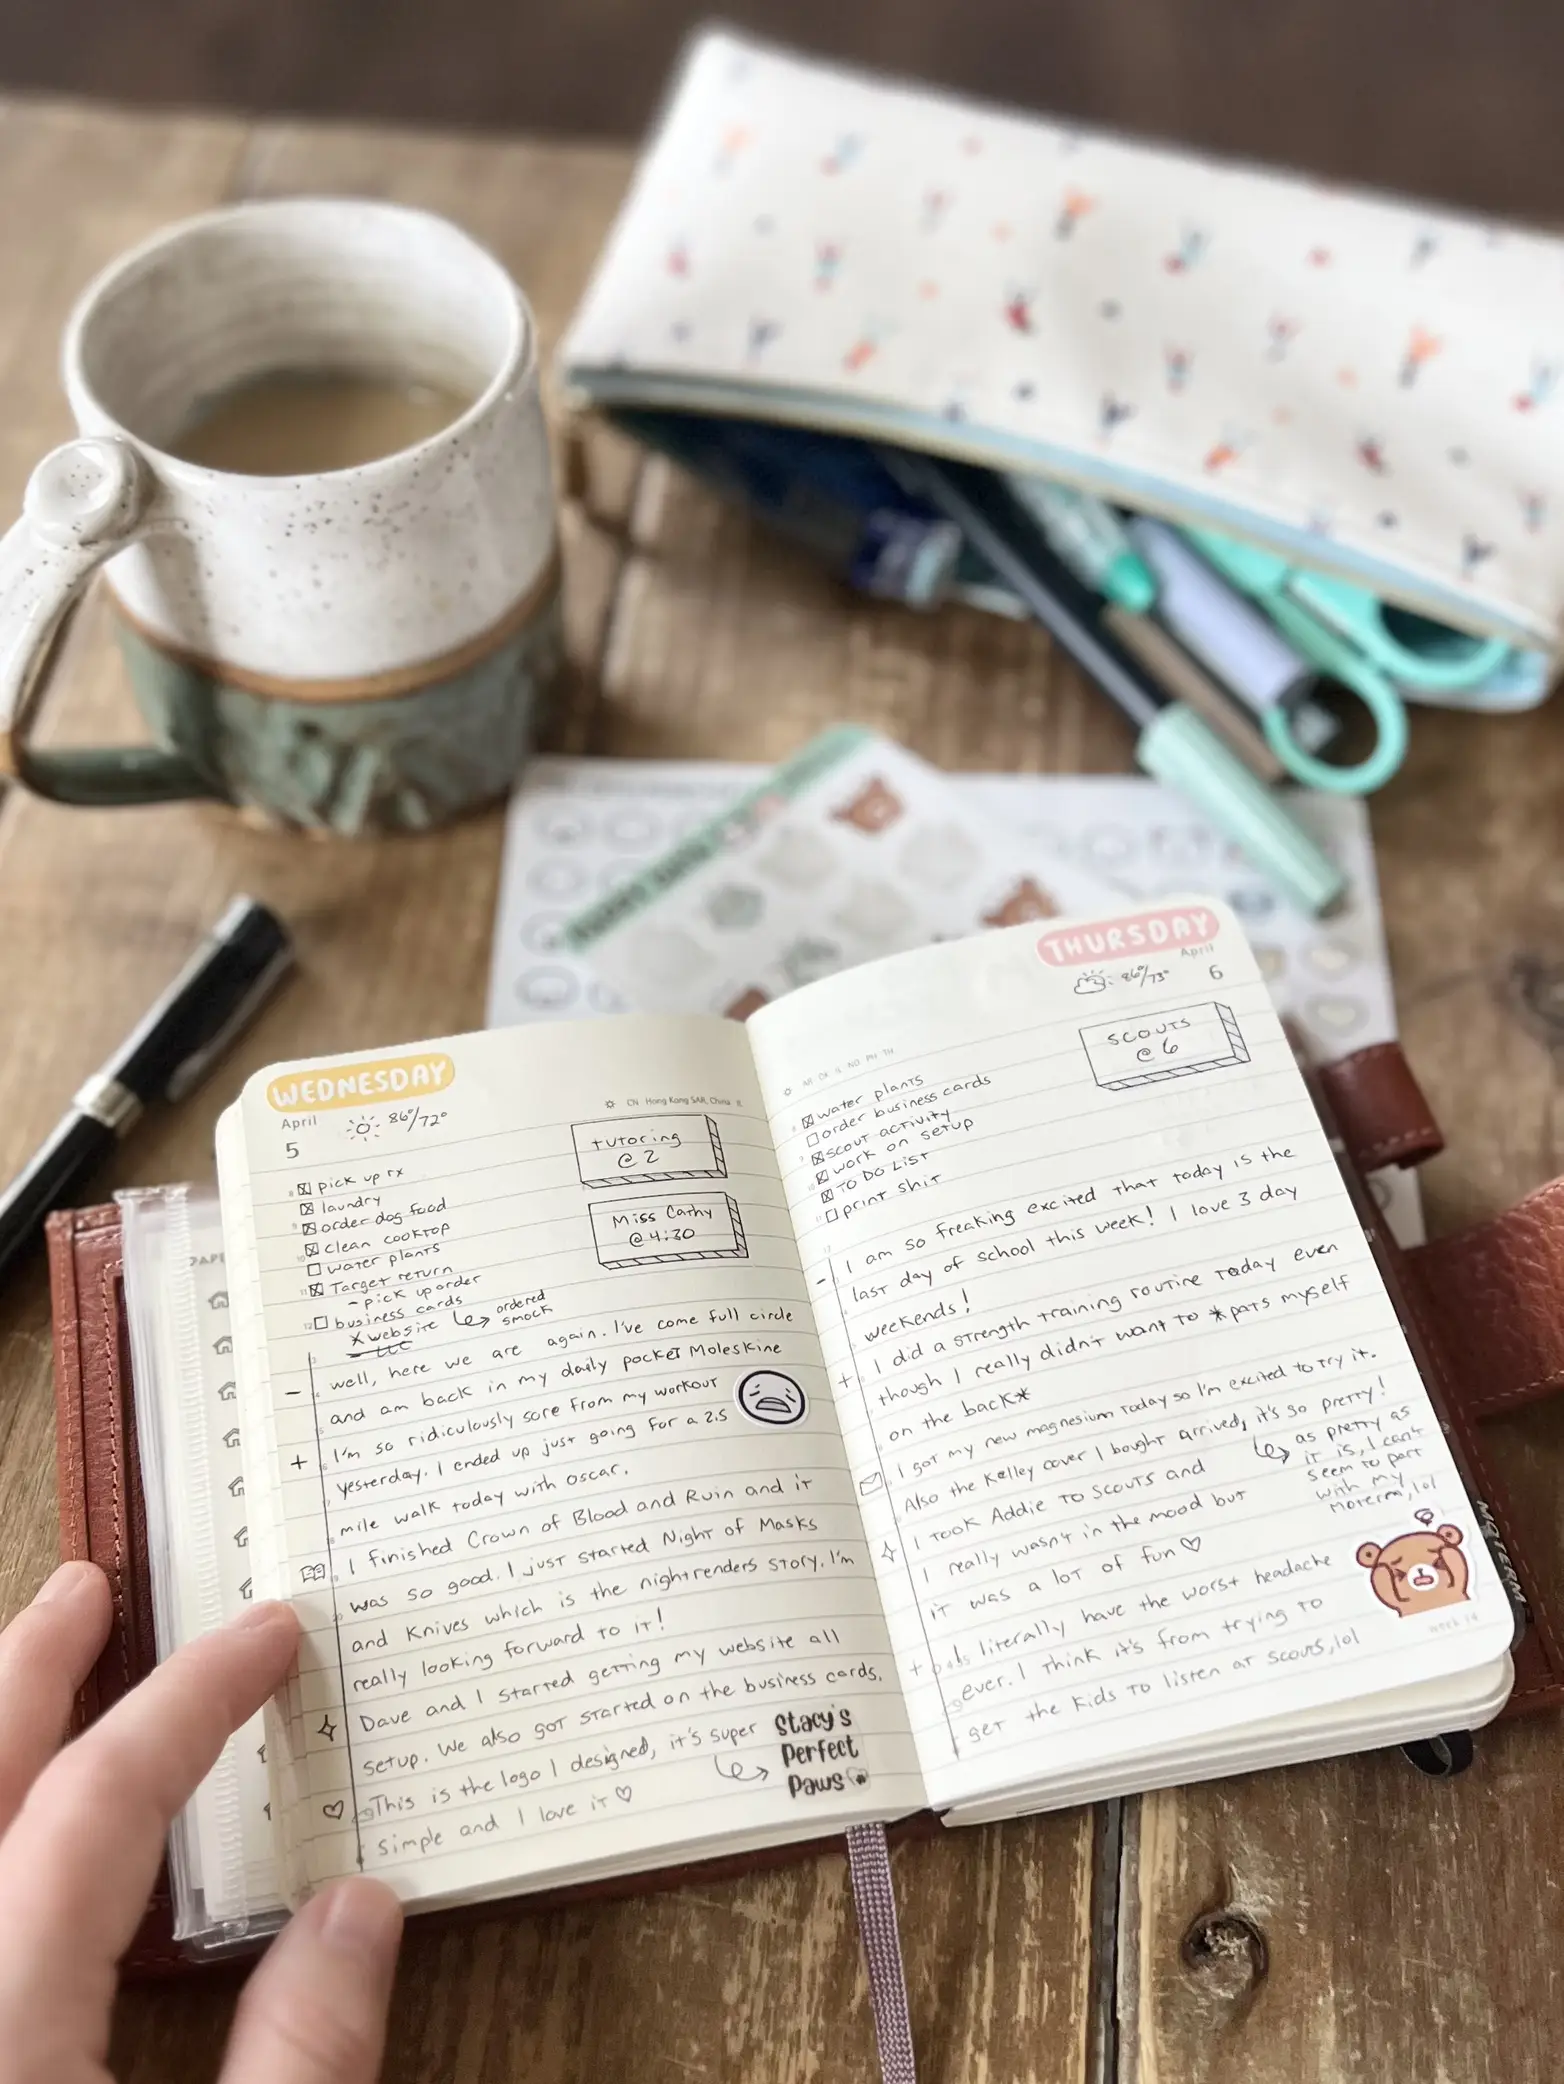 WEDNESDAY
April
5
86°/72°
CN Hong Kong SAR, China IL
tutoring
@ 2
Miss Cathy
@ 4:30
pick up rx
laundry
order dog food
clean cooktop
water plants
Target return
- pick up order
business cards
x website
ordered
smock
LLC
well, here we are again. I've come full circle
and am back in my daily pocket Moleskine
I'm so ridiculously sore from my workout
yesterday. I ended up just going for a 2.5
mile walk today with Oscar.
I finished Crown of Blood and Ruin and it
was so good. I just started Night of Masks
and Knives which is the nightrenders story. I'm
really looking forward to it!
Dave and I started getting my website all
setup. We also got started on the business cards.
This is the logo I designed, it's super
simple and I love it ♡
Stacy's
Perfect
Paws
THURSDAY
April
6
86°/73°
SCOUTS
@ 6
water plants
order business cards
scout activity
work on setup
TO DO LIST
print shit
I am so freaking excited that today is the
last day of school this week! I love 3 day
weekends!
I did a strength training routine today even
though I really didn't want to *pats myself
on the back*
I got my new magnesium today so I'm excited to try it.
Also the Kelley cover I bought arrived, it's so pretty!
as pretty as
it is, I can't
seem to part
with my
Moterm, lol
I took Addie to Scouts and
I really wasn't in the mood but
it was a lot of fun ♡
I literally have the worst headache
ever. I think it's from trying to
get the kids to listen at scouts, lol
week 14
MOTERM